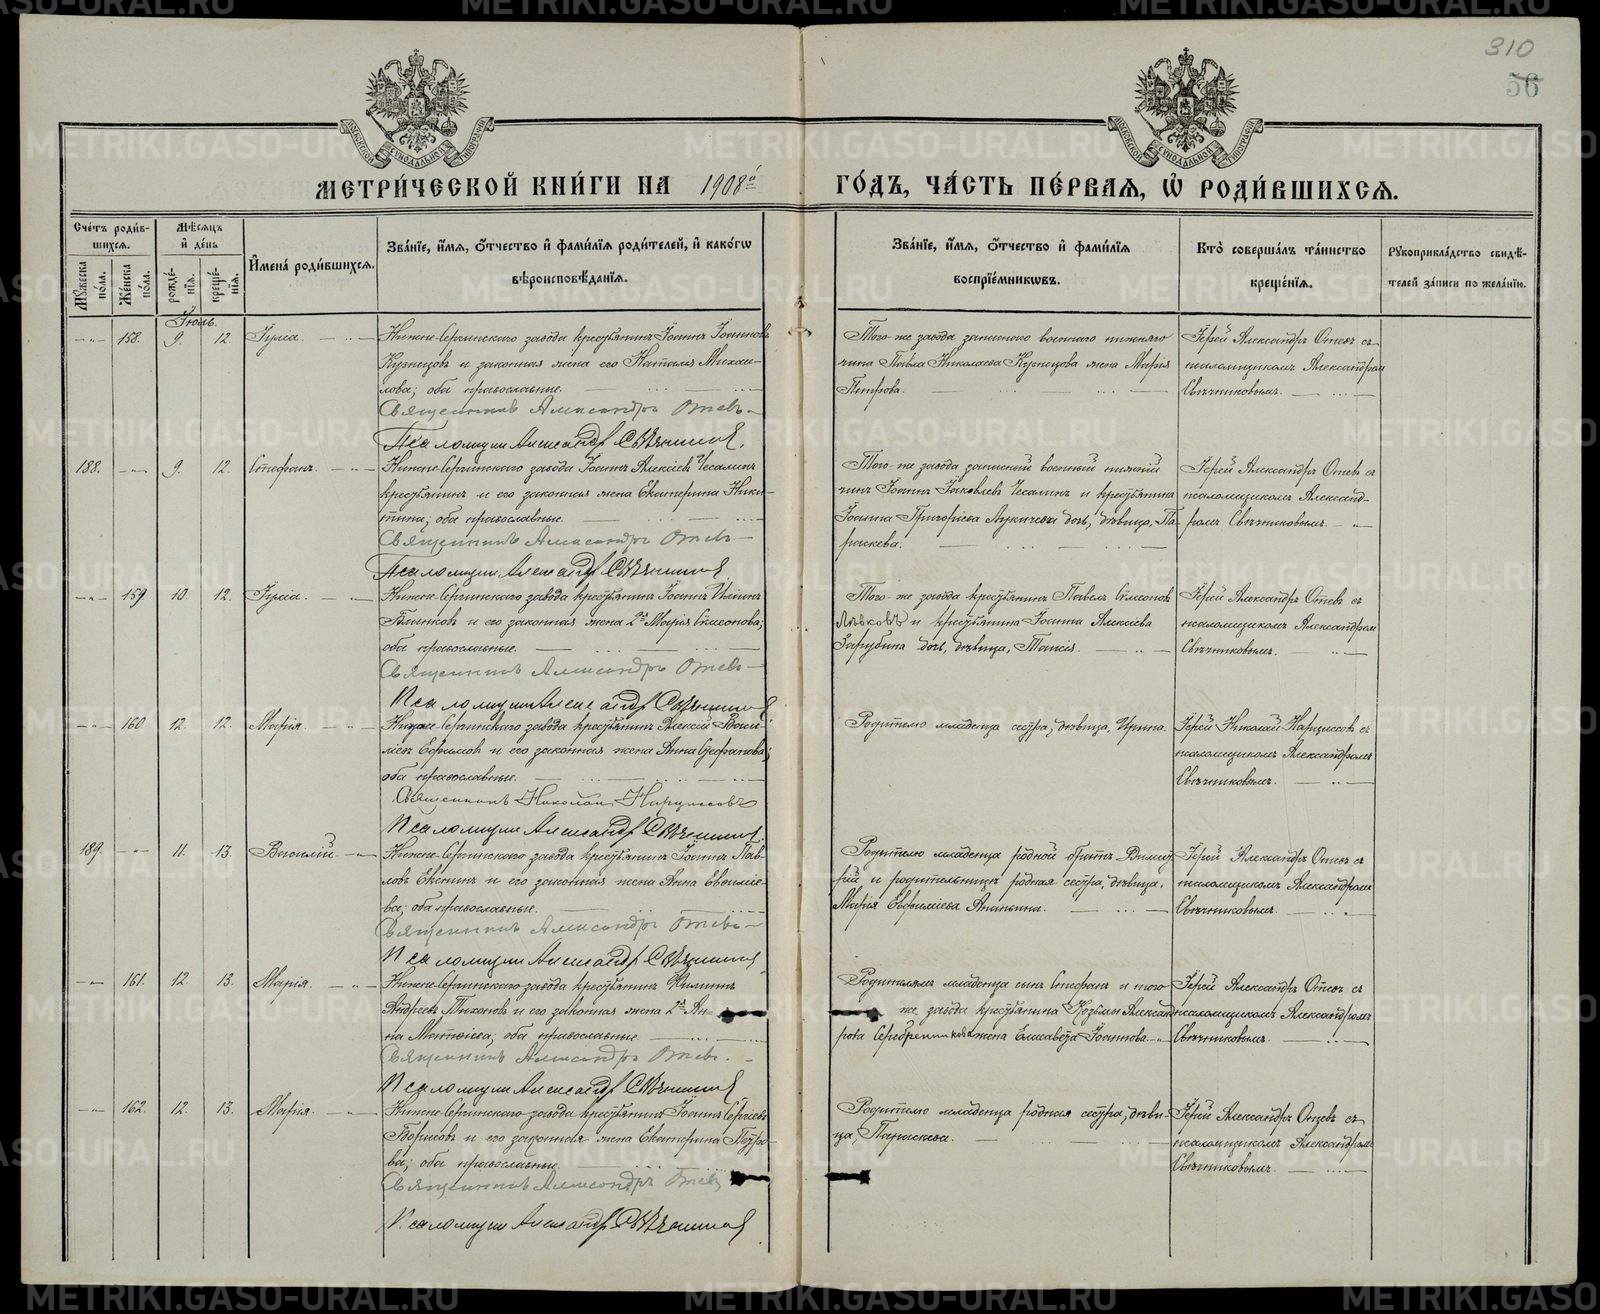 310
56
МЕТРИ́ЧЕСКОЙ КНИ́ГИ НА 1908й
ГО́ДЪ, ЧА́СТЬ ПЕ́РВАЯ, Ѡ РОДИ́ВШИХСЯ.
Сче́тъ роди́вшихся.
Му́жеска по́ла.
Же́нска по́ла.
Мѣ́сяцъ и де́нь
рожде́нія.
креще́нія.
Имена́ роди́вшихся.
Зва́ніе, и́мя, о́тчество и фами́лія роди́телей, и како́гѡ
вѣроисповѣ́данія.
Зва́ніе, и́мя, о́тчество и фами́лія
воспріе́мникѡвъ.
Кто̀ соверша́лъ та́инство
креще́нія.
Рукоприкла́дство свидѣ́-
телей за́писи по жела́нію.
Іюль.
158. 9. 12.
Нижне-Сергинскаго завода крестьянинъ Іоаннъ Іоанновъ
Кузнецовъ и законная жена его Наталія Михаи-
лова; оба православные.
Священникъ Александръ Отевъ
Псаломщикъ Александръ Свѣчниковъ
Того-же завода запаснаго военнаго нижняго
чина Павла Николаева Кузнецова жена Марія
Петрова.
Іерей Александръ Отевъ съ
псаломщикомъ Александромъ
Свѣчниковымъ.
188. 9. 12. Стефанъ.
Нижне-Сергинскаго завода Іоаннъ Алексіевъ Чесалинъ
крестьянинъ и его законная жена Екатерина Ники-
тина; оба православные.
Священникъ Александръ Отевъ
Псаломщикъ Александръ Свѣчниковъ
Того-же завода запасный военный нижній
чинъ Іоаннъ Іаковлевъ Чесалинъ и крестьянина
Іоанна Григоріева дочь, дѣвица, Па-
раскева.
Іерей Александръ Отевъ съ
псаломщикомъ Александ-
ромъ Свѣчниковымъ.
159 10. 12.
Нижне-Сергинскаго завода крестьянинъ Іоаннъ
Блинковъ и его законная жена 2го Марія Симеонова;
оба православные.
Священникъ Александръ Отевъ
Псаломщикъ Александръ Свѣчниковъ
Того-же завода крестьянинъ Павелъ Симеоновъ
и крестьянина Іоанна Алексіева
Зарубина дочь, дѣвица, Таисія.
Іерей Александръ Отевъ съ
псаломщикомъ Александромъ
Свѣчниковымъ.
160 12. 12. Марія
Нижне-Сергинскаго завода крестьянинъ Алексій Васи-
ліевъ Ефимовъ и его законная жена Анна Стефанова;
оба православные.
Священникъ Николай Нарциссовъ
Псаломщикъ Александръ Свѣчниковъ
Родителю младенца сестра, дѣвица, Ирина.
Іерей Николай Нарциссовъ съ
псаломщикомъ Александромъ
Свѣчниковымъ.
189 11. 13. Василій.
Нижне-Сергинскаго завода крестьянинъ Іоаннъ Пав-
ловъ и его законная жена Анна Евфиміе-
ва; оба православные.
Священникъ Александръ Отевъ
Псаломщикъ Александръ Свѣчниковъ
Родителю младенца родной братъ
и родительницѣ родная сестра, дѣвица,
Марія Евфиміева Ананьина.
Іерей Александръ Отевъ съ
псаломщикомъ Александромъ
Свѣчниковымъ.
161. 12. 13. Марія.
Нижне-Сергинскаго завода крестьянинъ Филиппъ
Андреевъ Тихоновъ и его законная жена 2го Ан-
на Матѳіева; оба православные
Священникъ Александръ Отевъ.
Псаломщикъ Александръ Свѣчниковъ
Родителямъ младенца сынъ Стефанъ и того-
же завода крестьянина Козьмы Александ-
рова Серебренникова жена Елисавета Іоаннова.
Іерей Александръ Отевъ съ
псаломщикомъ Александромъ
Свѣчниковымъ.
162. 12. 13. Марія.
Нижне-Сергинскаго завода крестьянинъ Іоаннъ Сергіевъ
Борисовъ и его законная жена Екатерина Петро-
ва; оба православные.
Священникъ Александръ Отевъ
Псаломщикъ Александръ Свѣчниковъ
Родителю младенца родная сестра, дѣви-
ца, Параскева.
Іерей Александръ Отевъ съ
псаломщикомъ Александромъ
Свѣчниковымъ.
METRIKI.GASO-URAL.RU